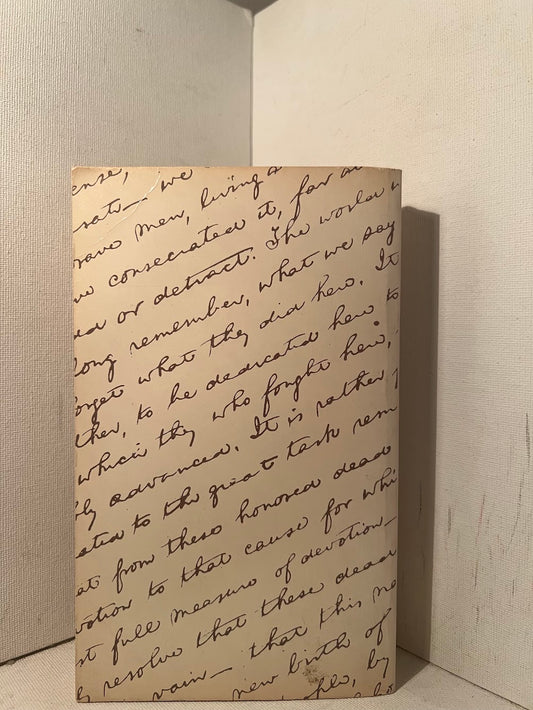 ense,
sate— we
rave men, living a
ve consecrated it, far a
dd or detract. The world w
long remember, what we say
orget what they did here. It
ther, to be dedicated here to
which they who fought here,
bly advanced. It is rather
ated to the great task rem
at from these honored dead
votion to that cause for whi
st full measure of devotion—
y resolve that these dead
vain— that this na
new birth of
ple, by